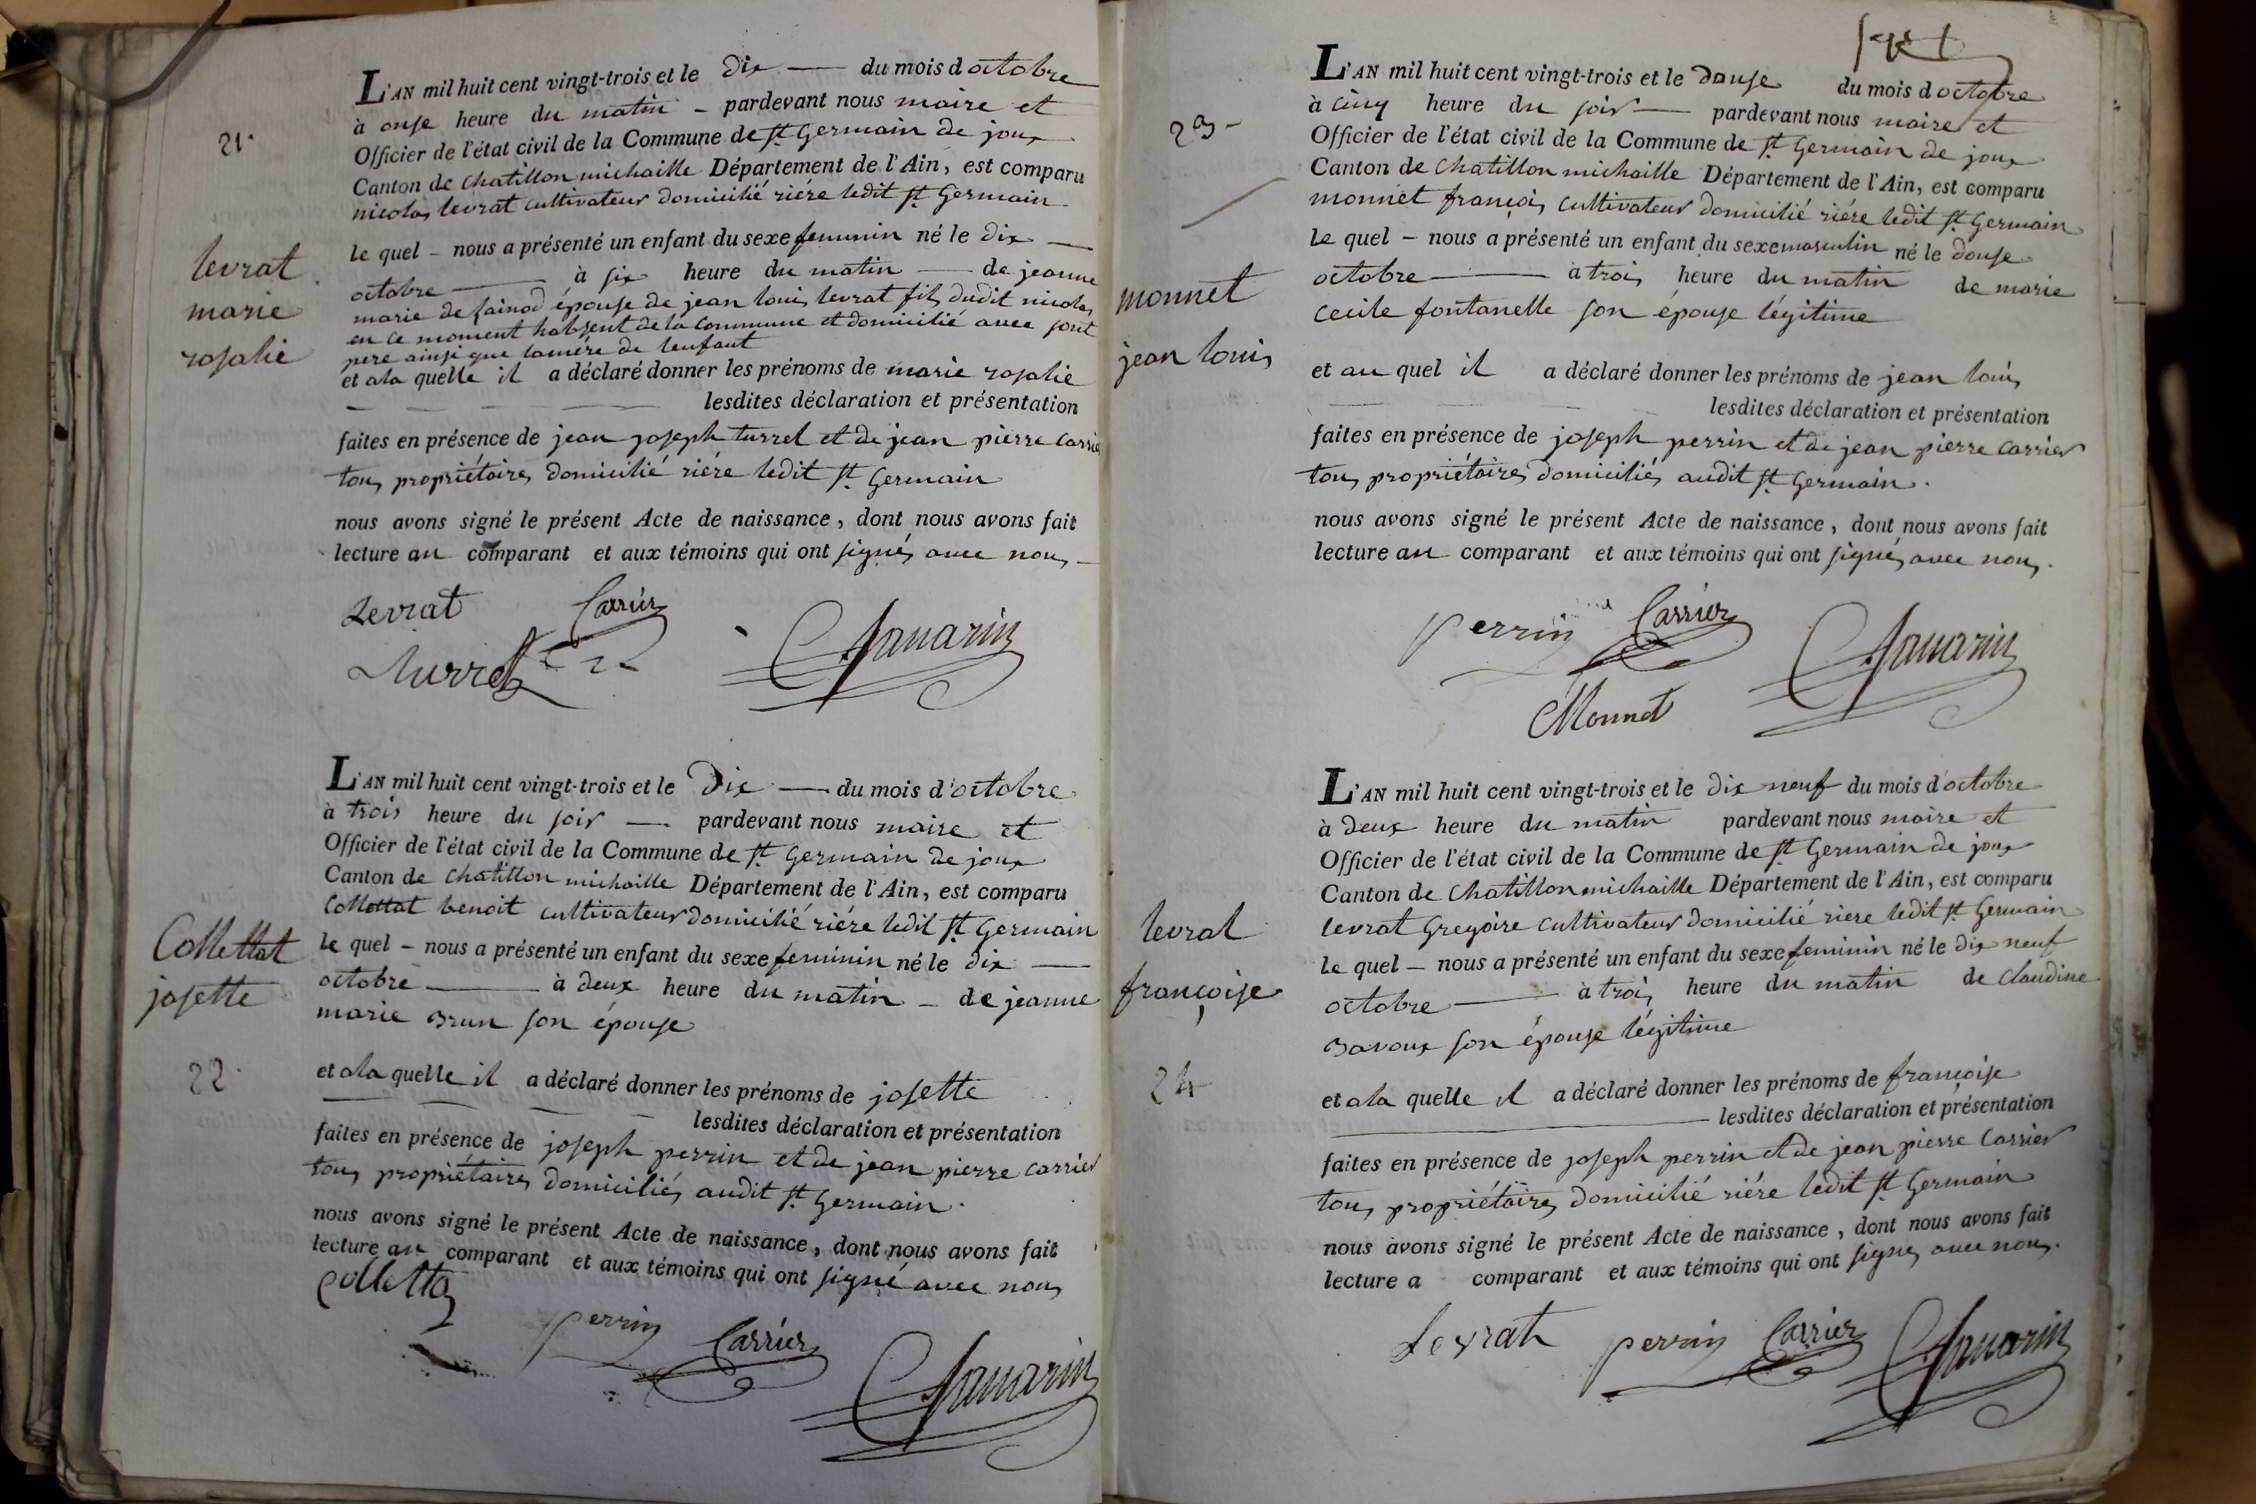 21.
L'AN mil huit cent vingt-trois et le dix — du mois d octobre
à onse heure du matin - pardevant nous maire et
Officier de l'état civil de la Commune de St Germain de joux
Canton de chatillon michaille Département de l'Ain, est comparu
nicolas levrat cultivateur domicilié riére ledit St Germain
le quel - nous a présenté un enfant du sexe feminin né le dix —
octobre — à six heure du matin — de jeanne
marie de Lainod épouse de jean louis levrat fils dudit nicolas
en ce moment habsent de la commune et domicilié avec sont
pere ainsi que lamére de lenfant
et ala quelle il a déclaré donner les prénoms de marie rosalie
lesdites déclaration et présentation
faites en présence de jean joseph turrel et de jean pierre Carrier
tous propriétaires domicilié riére ledit St Germain
nous avons signé le présent Acte de naissance, dont nous avons fait
lecture au comparant et aux témoins qui ont signés avec nous -
levrat
marie
rosalie
Levrat Carrier
Turrel Savarin
L'AN mil huit cent vingt-trois et le Dix — du mois d'octobre
à trois heure du soir — pardevant nous maire et
Officier de l'état civil de la Commune de St Germain de joux
Canton de chatillon michaille Département de l'Ain, est comparu
Collettat benoit cultivateur domicilié riére ledit St Germain
le quel - nous a présenté un enfant du sexe feminin né le dix —
octobre — à deux heure du matin - de jeanne
marie Brun son épouse
et ala quelle il a déclaré donner les prénoms de josette
lesdites déclaration et présentation
faites en présence de joseph perrin et de jean pierre carrier
tous propriétaires domiciliés audit St Germain.
nous avons signé le présent Acte de naissance, dont nous avons fait
lecture au comparant et aux témoins qui ont signé avec nous
Collettat
josette
22.
Colletta
perrin Carrier Savarin
23-
L'AN mil huit cent vingt-trois et le douse du mois d octobre
à cinq heure du soir — pardevant nous maire et
Officier de l'état civil de la Commune de St Germain de joux
Canton de chatillon michaille Département de l'Ain, est comparu
monnet françois cultivateur domicilié riére ledit St Germain
le quel - nous a présenté un enfant du sexe masculin né le douse
octobre — à trois heure du matin de marie
cecile fontanelle son épouse légitime
et au quel il a déclaré donner les prénoms de jean louis
lesdites déclaration et présentation
faites en présence de joseph perrin et de jean pierre carrier
tous propriétaires domiciliés audit St Germain.
nous avons signé le présent Acte de naissance, dont nous avons fait
lecture au comparant et aux témoins qui ont signés avec nous.
monnet
jean louis
perrin Carrier Savarin
Monnet
L'AN mil huit cent vingt-trois et le dix neuf du mois d'octobre
à deux heure du matin pardevant nous maire et
Officier de l'état civil de la Commune de St Germain de joux
Canton de chatillon michaille Département de l'Ain, est comparu
levrat Gregoire cultivateur domicilié riere ledit St Germain
le quel - nous a présenté un enfant du sexe feminin né le dix neuf
octobre — à trois heure du matin de Claudine
Bavoux son épouse légitime
et ala quelle il a déclaré donner les prénoms de françoise
— lesdites déclaration et présentation
faites en présence de joseph perrin et de jean pierre Carrier
tous propriétaires domicilié riére ledit St Germain
nous avons signé le présent Acte de naissance, dont nous avons fait
lecture a comparant et aux témoins qui ont signés avec nous.
levrat
françoise
24
Levrat perrin Carrier Savarin